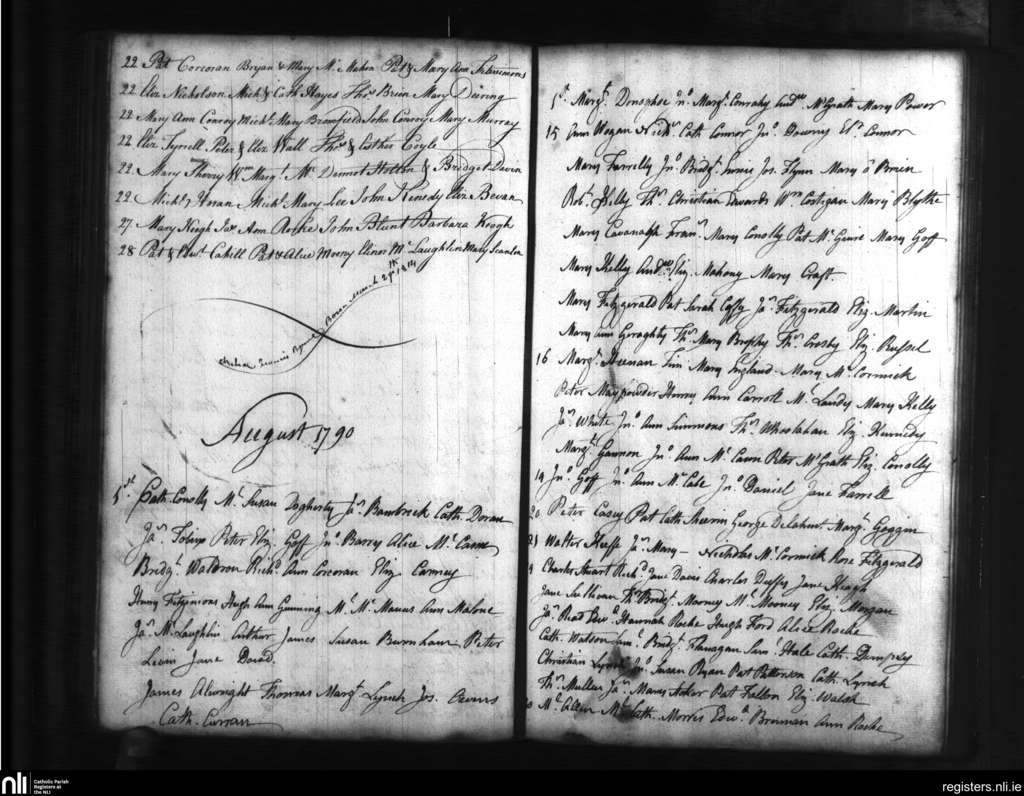 22 Pat Corcoran Bryan & Mary Mc Mahon Pat & Mary Ann Fitzsimons
22 Eliz Nicholson Mich & Cath Hayes Thos Brien Mary Deering
22 Mary Ann Conroy Michl Mary Bromfield John Conroy Mary Murray
22 Eliz Tyrrell Peter & Eliz Wall Thos & Esther Coyle
22 Mary Thorry Wm Margt Mc Dermot & Bridget Davin
22 Michl Horan Michl Mary Lee John Kenedy Eliz Bevan
27 Mary Keogh Jas Ann Rorke John Blunt Barbara Keogh
28 Pat & Edwd Cahill Pat & Alice Mooney Elinor Mc Laughlin Mary Scanlan
Francis Byrne Born March 29th 1814
August 1790
1st Cath Conolly Ml Susan Dogherty Js Bambrick Cath Doran
Js Tobin Peter Eliz Goff Jno Barry Alice Mc Cann
Bridgt Waldron Richd Ann Corcoran Eliz Carney
Henry Fitzsimons Hugh Ann Gunning Ml Mc Manus Ann Malone
Js McLaughlin Arthur James Susan Burnham Peter
Levin Jane Dowd.
James Alwright Thomas Margt Lynch Jos. Owens
Cath. Curran
Margt Donoghoe Jno Margt Conrahy Andw McGrath Mary Power
15 Ann Hogan Nichs Cath Connor Jno Downey Elr Connor
Mary Farrelly Jno Bridgt Jos. Flynn Mary o Brien
Robt Kelly Ths Christian Edwards Wm Costigan Mary Blythe
Mary Cavanagh Frans Mary Conolly Pat Mc Guire Mary Goff
Mary Kelly Andw Eliz. Mahony Mary Craft.
Mary Fitzgerald Pat Sarah Caffry Js Fitzgerald Eliz Martin
Mary ann Geraghty Ths Mary Brophy Ths Crosby Eliz Russel
16 Margt Heenan Tim Mary England Mary Mc Cormick
Peter Maypowder Henry Ann Carroll Ml Landy Mary Kelly
Js White Jno Ann Simmons Ths Whoolahan Eliz Kennedy
Margt Gannon Jno Ann Mc Cawn Peter McGrath Eliz Conolly
19 Jno Goff Jno Ann Mc Cabe Jno Daniel Jane Farrell
20 Peter Casey Pat Cath George Delahunt Margt Goggin
21 Walter Js Mary - Nicholas Mc Cormick Rose Fitzgerald
Charles Stuart Richd Jane Davis Charles Duffy Jane Keogh
Jane Sullivan Ths Bridgt Mooney Ml Mooney Eliz Morgan
Js Read Edwd Hannah Roche Hugh Ford Alice Roche
Cath. Watson Saml Bridgt Flanagan Saml Hale Cath. Dempsey
Christian Lynch Jno Susan Ryan Pat Patterson Cath. Lynch
Ths Mullen Js Mary Pat Fallon Eliz Walsh
Ml Allen Ml Cath. Morris Edwd Brennan Ann Roche
nli
Catholic Parish
Registers at
the NLI
registers.nli.ie